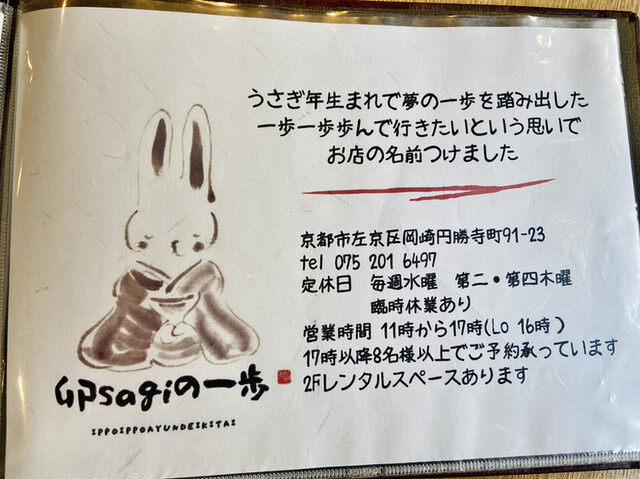 うさぎ年生まれで夢の一歩を踏み出した
一歩一歩歩んで行きたいという思いで
お店の名前つけました
京都市左京区岡崎円勝寺町91-23
tel 075 201 6497
定休日 毎週水曜 第二・第四木曜
臨時休業あり
営業時間 11時から17時(Lo 16時)
17時以降8名様以上でご予約承っています
2Fレンタルスペースあります
卯sagiの一歩
IPPOIPPOAYUNDEIKITAI